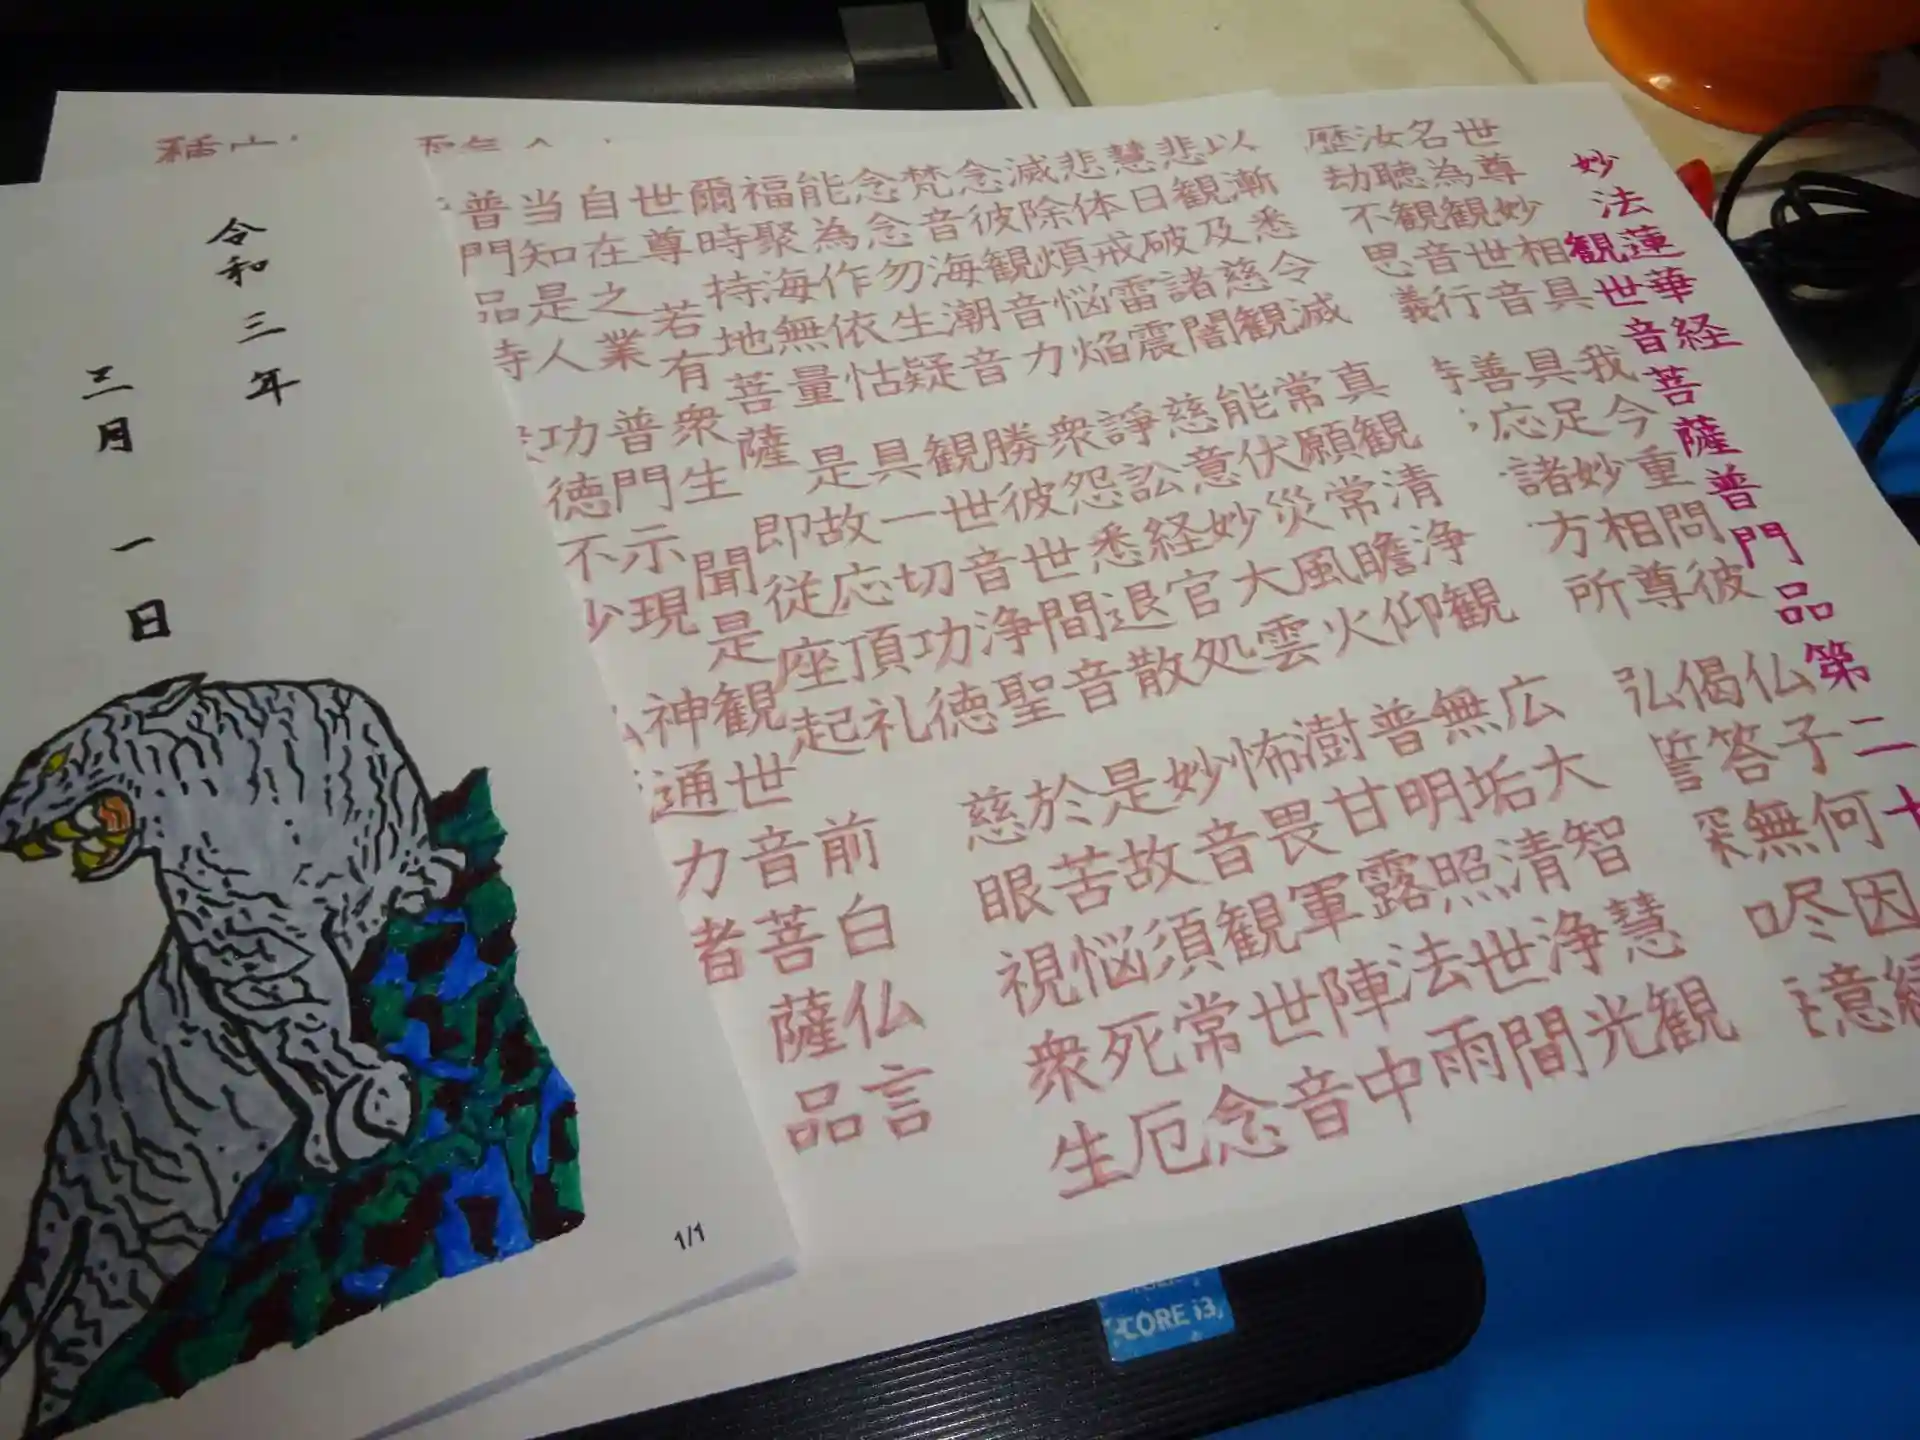 妙法蓮華経
観世音菩薩普門品第二十
世尊妙相具 我今重問彼 仏子何因縁
名為観世音 具足妙相尊 偈答無尽意
汝聴観音行 善応諸方所 弘誓深
歴劫不思議
以漸悉令滅 真観清浄観 広大智慧観
悲観及慈観 常願常瞻仰 無垢清浄光
慧日破諸闇 能伏災風火 普明照世間
悲体戒雷震 慈意妙大雲 澍甘露法雨
滅除煩悩焔 諍訟経官処 怖畏軍陣中
念彼観音力 衆怨悉退散 妙音観世音
梵音海潮音 勝彼世間音 是故須常念
念念勿生疑 観世音浄聖 於苦悩死厄
能為作依怙 具一切功徳 慈眼視衆生
福聚海無量 是故応頂礼
爾時持地菩薩 即従座起 前白仏言
世尊若有衆生 聞是観世音菩薩品
自在之業 普門示現 神通力者
当知是人 功徳不少
普門品時
令和三年
三月 一日
1/1
CORE i3